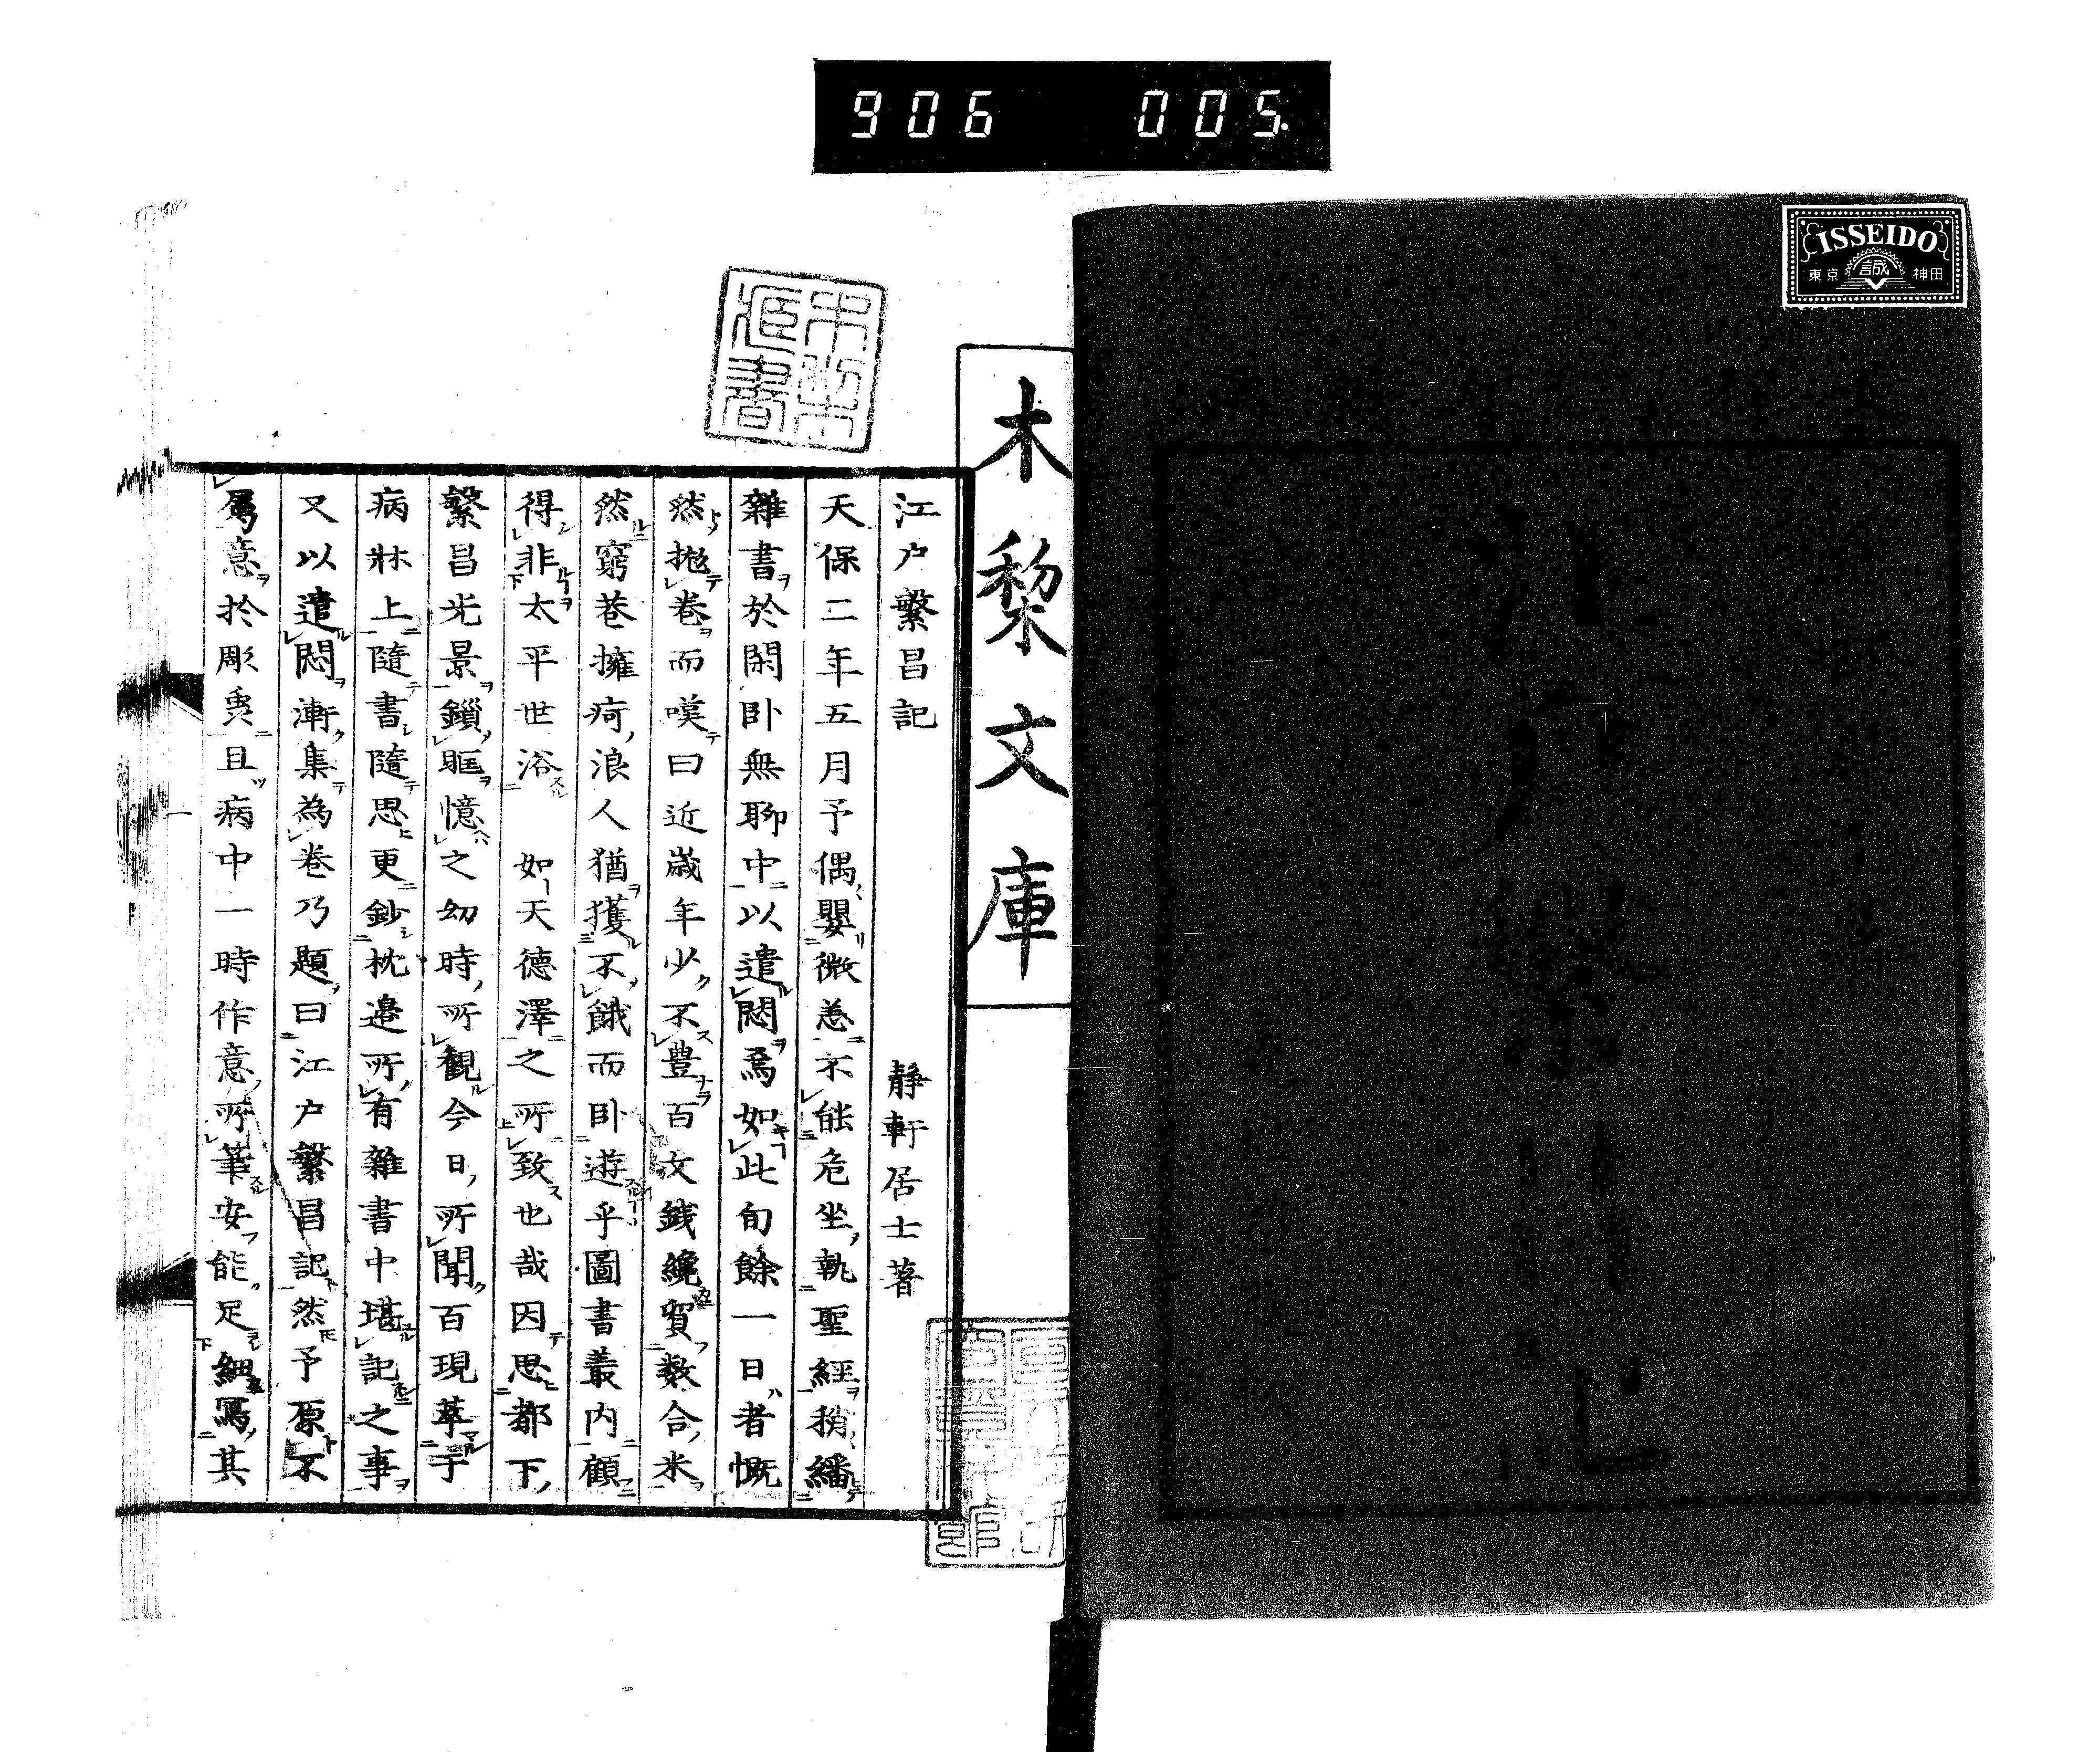 906 005.
ISSEIDO
東京 誠 神田
木黎文庫
江戸繁昌記
靜軒居士著
天保二年五月予偶嬰微恙不能危坐執聖經稍繙
雜書於閑卧無聊中以遣悶焉如此旬餘一日者慨
然抛卷而嘆曰近歲年少不豊百文錢纔買数合米
然窮巷擁疴浪人猶獲不餓而卧遊乎圖書叢内顧
得非太平世浴 如天德澤之所致也哉因思都下
繁昌光景鎖眶憶之幼時所觀今日所聞百現萃于
病牀上隨書隨思更鈔枕邊所有雜書中堪記之事
又以遣悶漸集為卷乃題曰江戸繁昌記然予原不
属意於彫虫且病中一時作意所筆安能足細寫其
一